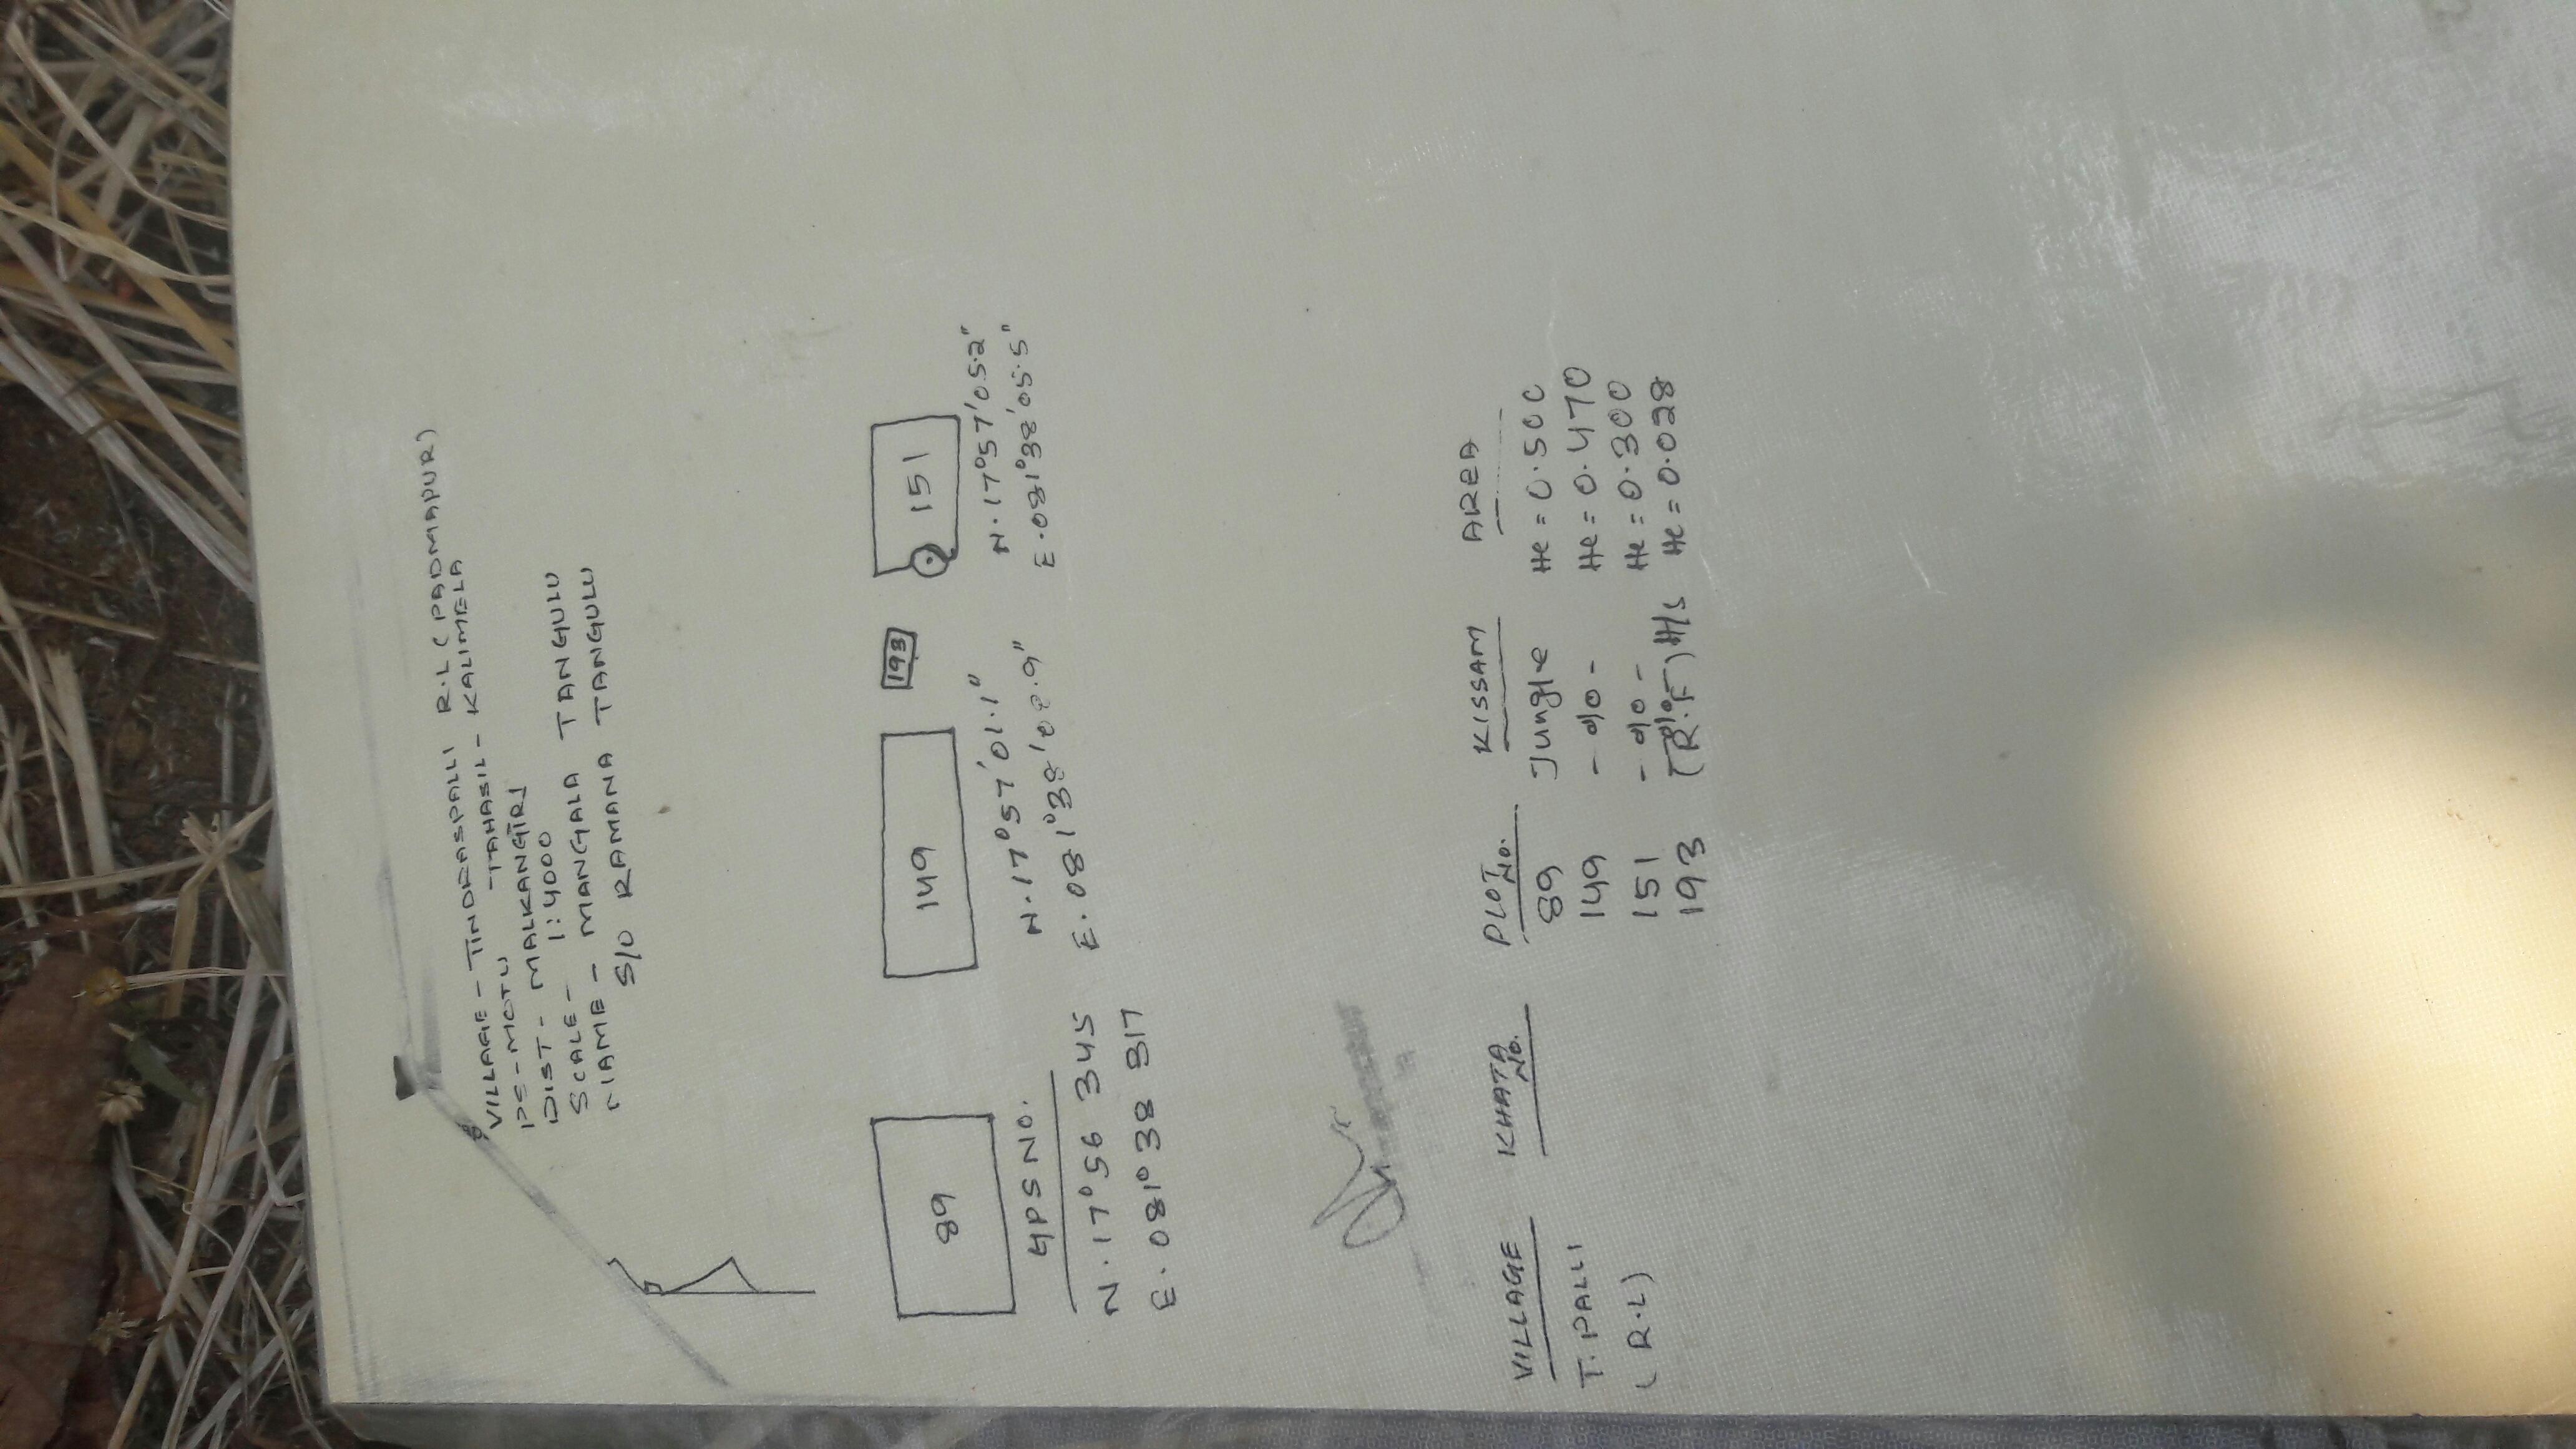 VILLAGE - TINDRASPALLI R.L (PADMAPUR)
PS - MOTU - TAHASIL - KALIMELA
DIST - MALKANGIRI
SCALE - 1:4000
NAME - MANGALA TANGULU
S/O RAMANA TANGULU
89 149 193 151
GPS NO.
N. 17° 56 345
E. 081° 38 817
N. 17° 57' 01.1"
E. 081° 38' 02.9"
N. 17° 57' 05.2"
E. 081° 38' 05.5"
VILLAGE KHATA NO. PLOT NO. KISSAM AREA
T. PALLI 89 Jungle He = 0.500
(R.L) 149 - do - He = 0.470
151 - do - He = 0.300
193 (R.F) H/S He = 0.028